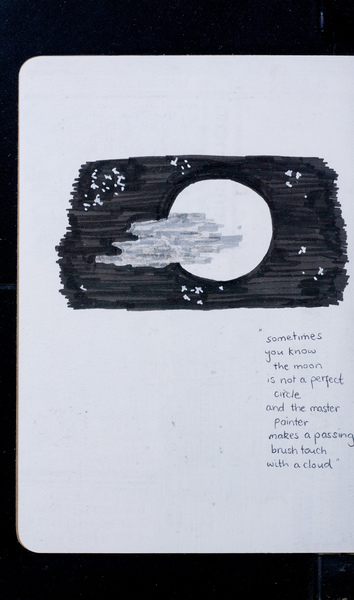 "sometimes
you know
the moon
is not a perfect
circle
and the master
painter
makes a passing
brush touch
with a cloud"